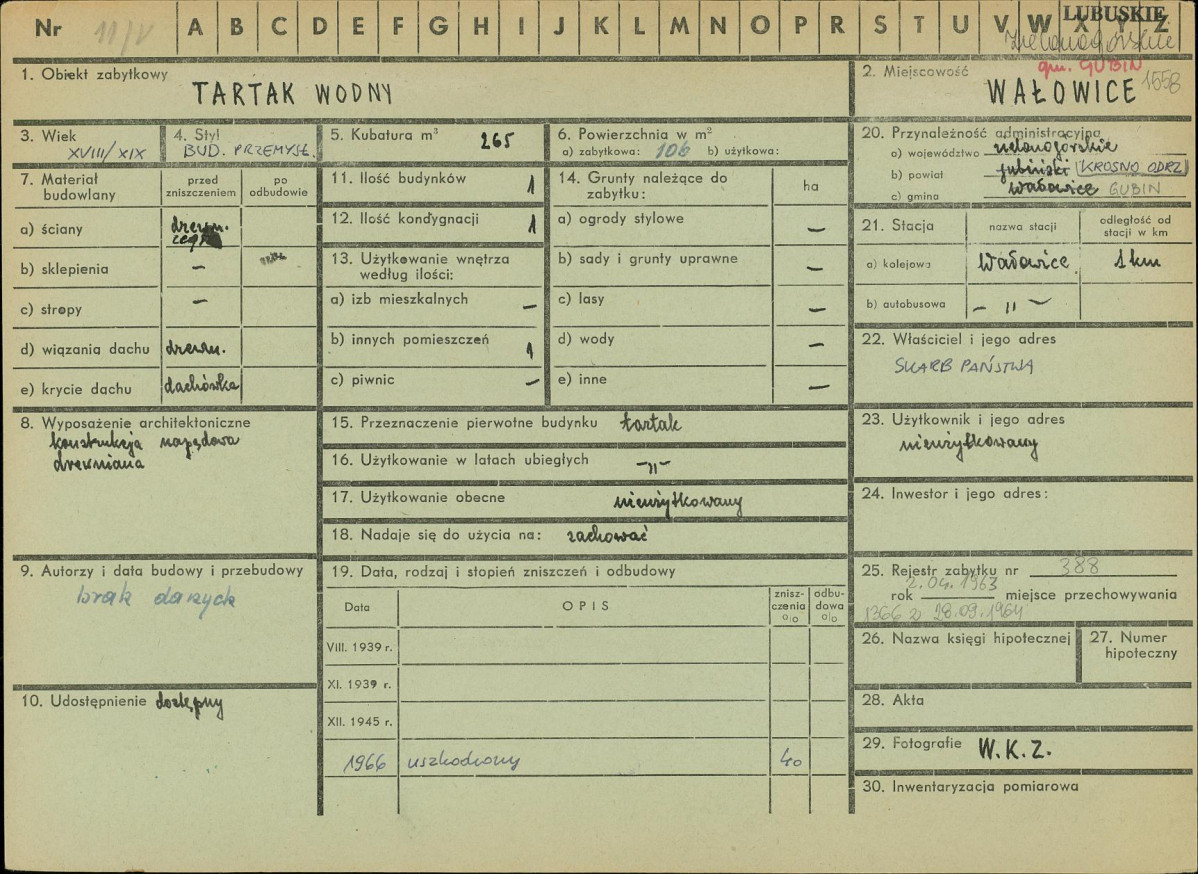 Nr 11/V A B C D E F G H I J K L M N O P R S T U V W X Y Z
LUBUSKIE
zielonogórskie
gm. GUBIN
1. Obiekt zabytkowy
TARTAK WODNY
2. Miejscowość
WAŁOWICE 1558
3. Wiek
XVIII/XIX
4. Styl
BUD. PRZEMYSŁ.
5. Kubatura m³ 265
6. Powierzchnia w m²
a) zabytkowa: 106 b) użytkowa:
20. Przynależność administracyjna
a) województwo zielonogórskie
b) powiat gubiński KROSNO ODRZ.
c) gmina Wałowice GUBIN
7. Materiał budowlany
przed zniszczeniem
po odbudowie
a) ściany drewn.
b) sklepienia –
c) stropy –
d) wiązania dachu drewn.
e) krycie dachu dachówka
11. Ilość budynków 1
12. Ilość kondygnacji 1
13. Użytkowanie wnętrza
według ilości:
a) izb mieszkalnych –
b) innych pomieszczeń 1
c) piwnic –
14. Grunty należące do
zabytku: ha
a) ogrody stylowe –
b) sady i grunty uprawne –
c) lasy –
d) wody –
e) inne –
21. Stacja
nazwa stacji
odległość od
stacji w km
a) kolejowa Wałowice 1 km
b) autobusowa – " –
22. Właściciel i jego adres
SKARB PAŃSTWA
8. Wyposażenie architektoniczne
konstrukcja napędowa
drewniana
15. Przeznaczenie pierwotne budynku tartak
16. Użytkowanie w latach ubiegłych –"–
17. Użytkowanie obecne nieużytkowany
18. Nadaje się do użycia na: zachować
23. Użytkownik i jego adres
nieużytkowany
24. Inwestor i jego adres:
9. Autorzy i data budowy i przebudowy
brak danych
10. Udostępnienie dostępny
19. Data, rodzaj i stopień zniszczeń i odbudowy
Data OPIS
znisz-
czenia
o/o
odbu-
dowa
o/o
VIII. 1939 r.
XI. 1939 r.
XII. 1945 r.
1966 uszkodzony 40
25. Rejestr zabytku nr 388
2.04.1963
rok miejsce przechowywania
1366 z 28.09.1964
26. Nazwa księgi hipotecznej
27. Numer
hipoteczny
28. Akta
29. Fotografie W.K.Z.
30. Inwentaryzacja pomiarowa